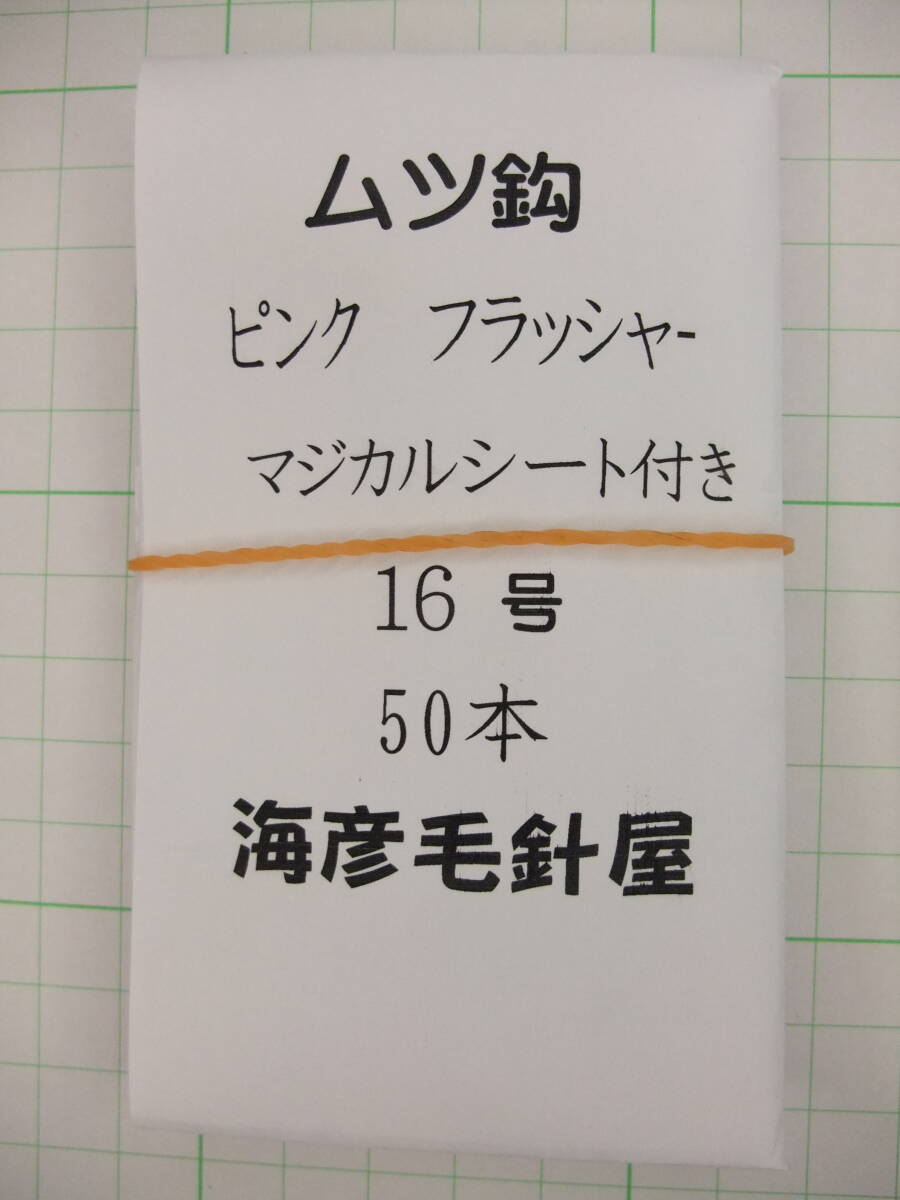 ムツ鈎
ピンク　フラッシャー
マジカルシート付き
16 号
50本
海彦毛針屋